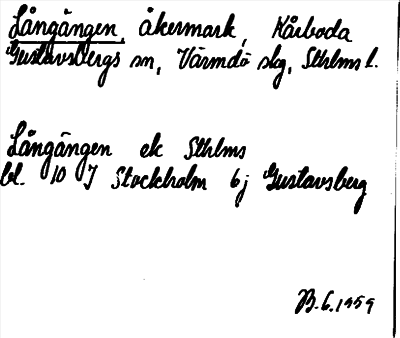 Långängen, åkermark, Kårboda
Gustavsbergs sn, Värmdö skg, Sthlms l.
Långängen ek Sthlms
bl. 10 I Stockholm 6j Gustavsberg
B. 6. 1959